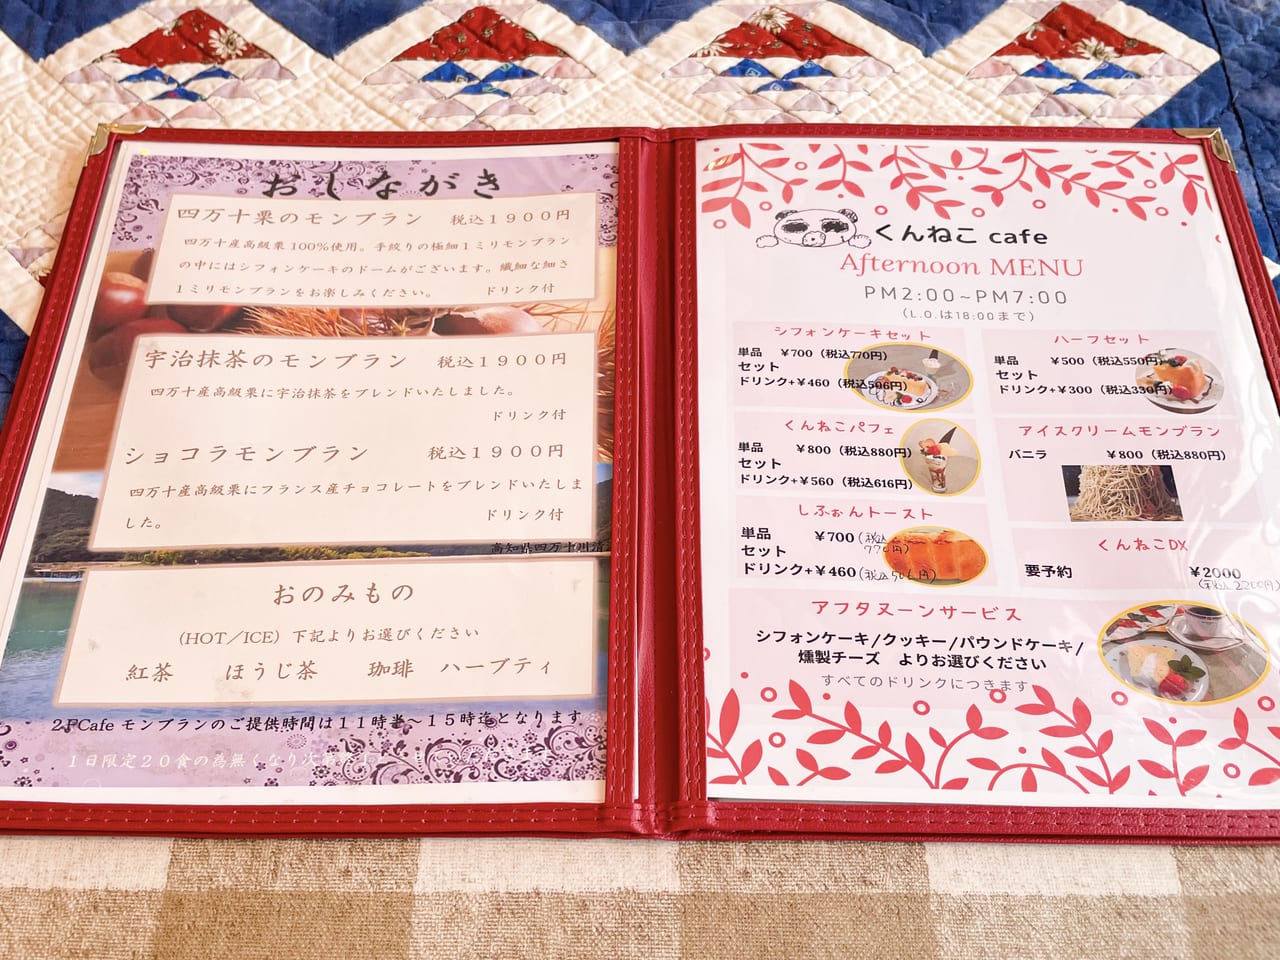 おしながき
四万十栗のモンブラン 税込１９００円
四万十産高級栗100％使用。手絞りの極細１ミリモンブラン
の中にはシフォンケーキのドームがございます。繊細な細さ
１ミリモンブランをお楽しみください。 ドリンク付
宇治抹茶のモンブラン 税込１９００円
四万十産高級栗に宇治抹茶をブレンドいたしました。
ドリンク付
ショコラモンブラン 税込１９００円
四万十産高級栗にフランス産チョコレートをブレンドいたしま
した。 ドリンク付
高知県四万十川清
おのみもの
（HOT／ICE）下記よりお選びください
紅茶 ほうじ茶 珈琲 ハーブティ
2FCafe モンブランのご提供時間は１１時半～１５時迄となります
１日限定２０食の為無くなり次第
くんねこ cafe
Afternoon MENU
PM2:00~PM7:00
(L.O.は18:00まで)
シフォンケーキセット
単品 ￥700（税込770円）
セット
ドリンク+￥460（税込506円）
ハーフセット
単品 ￥500（税込550円）
セット
ドリンク+￥300（税込330円）
くんねこパフェ
単品 ￥800（税込880円）
セット
ドリンク+￥560（税込616円）
アイスクリームモンブラン
バニラ ￥800（税込880円）
しふぉんトースト
単品 ￥700（税込770円）
セット
ドリンク+￥460（税込506円）
くんねこDX
要予約 ￥2000
（税込2200円）
アフタヌーンサービス
シフォンケーキ/クッキー/パウンドケーキ/
燻製チーズ よりお選びください
すべてのドリンクにつきます